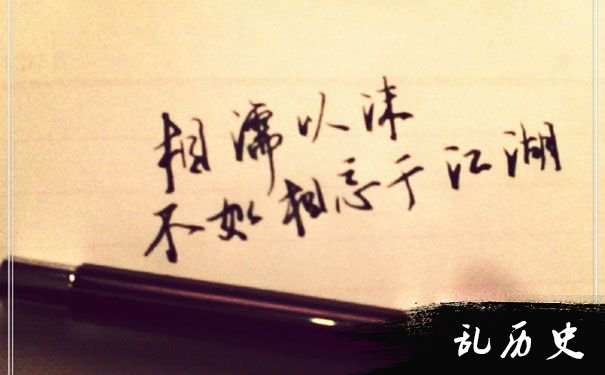 相濡以沫
不如相忘于江湖
乱历史